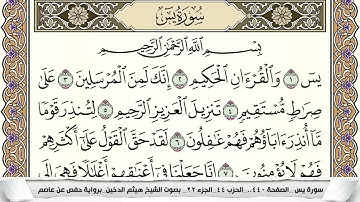 سُورَةُ يسٓ
بِسْمِ ٱللَّهِ ٱلرَّحْمَٰنِ ٱلرَّحِيمِ
يسٓ ١ وَٱلْقُرْءَانِ ٱلْحَكِيمِ ٢ إِنَّكَ لَمِنَ ٱلْمُرْسَلِينَ ٣ عَلَىٰ
صِرَٰطٍ مُّسْتَقِيمٍ ٤ تَنزِيلَ ٱلْعَزِيزِ ٱلرَّحِيمِ ٥ لِتُنذِرَ قَوْمًا
مَّآ أُنذِرَ ءَابَآؤُهُمْ فَهُمْ غَٰفِلُونَ ٦ لَقَدْ حَقَّ ٱلْقَوْلُ عَلَىٰٓ أَكْثَرِهِمْ
فَهُمْ لَا يُؤْمِنُونَ ٧ إِنَّا جَعَلْنَا فِىٓ أَعْنَٰقِهِمْ أَغْلَٰلًا فَهِىَ إِلَى
سورة يس _الصفحة -٤٤٠_ الحزب ٤٤_الجزء ٢٢ _ بصوت الشيخ هيثم الدخين_برواية حفص عن عاصم